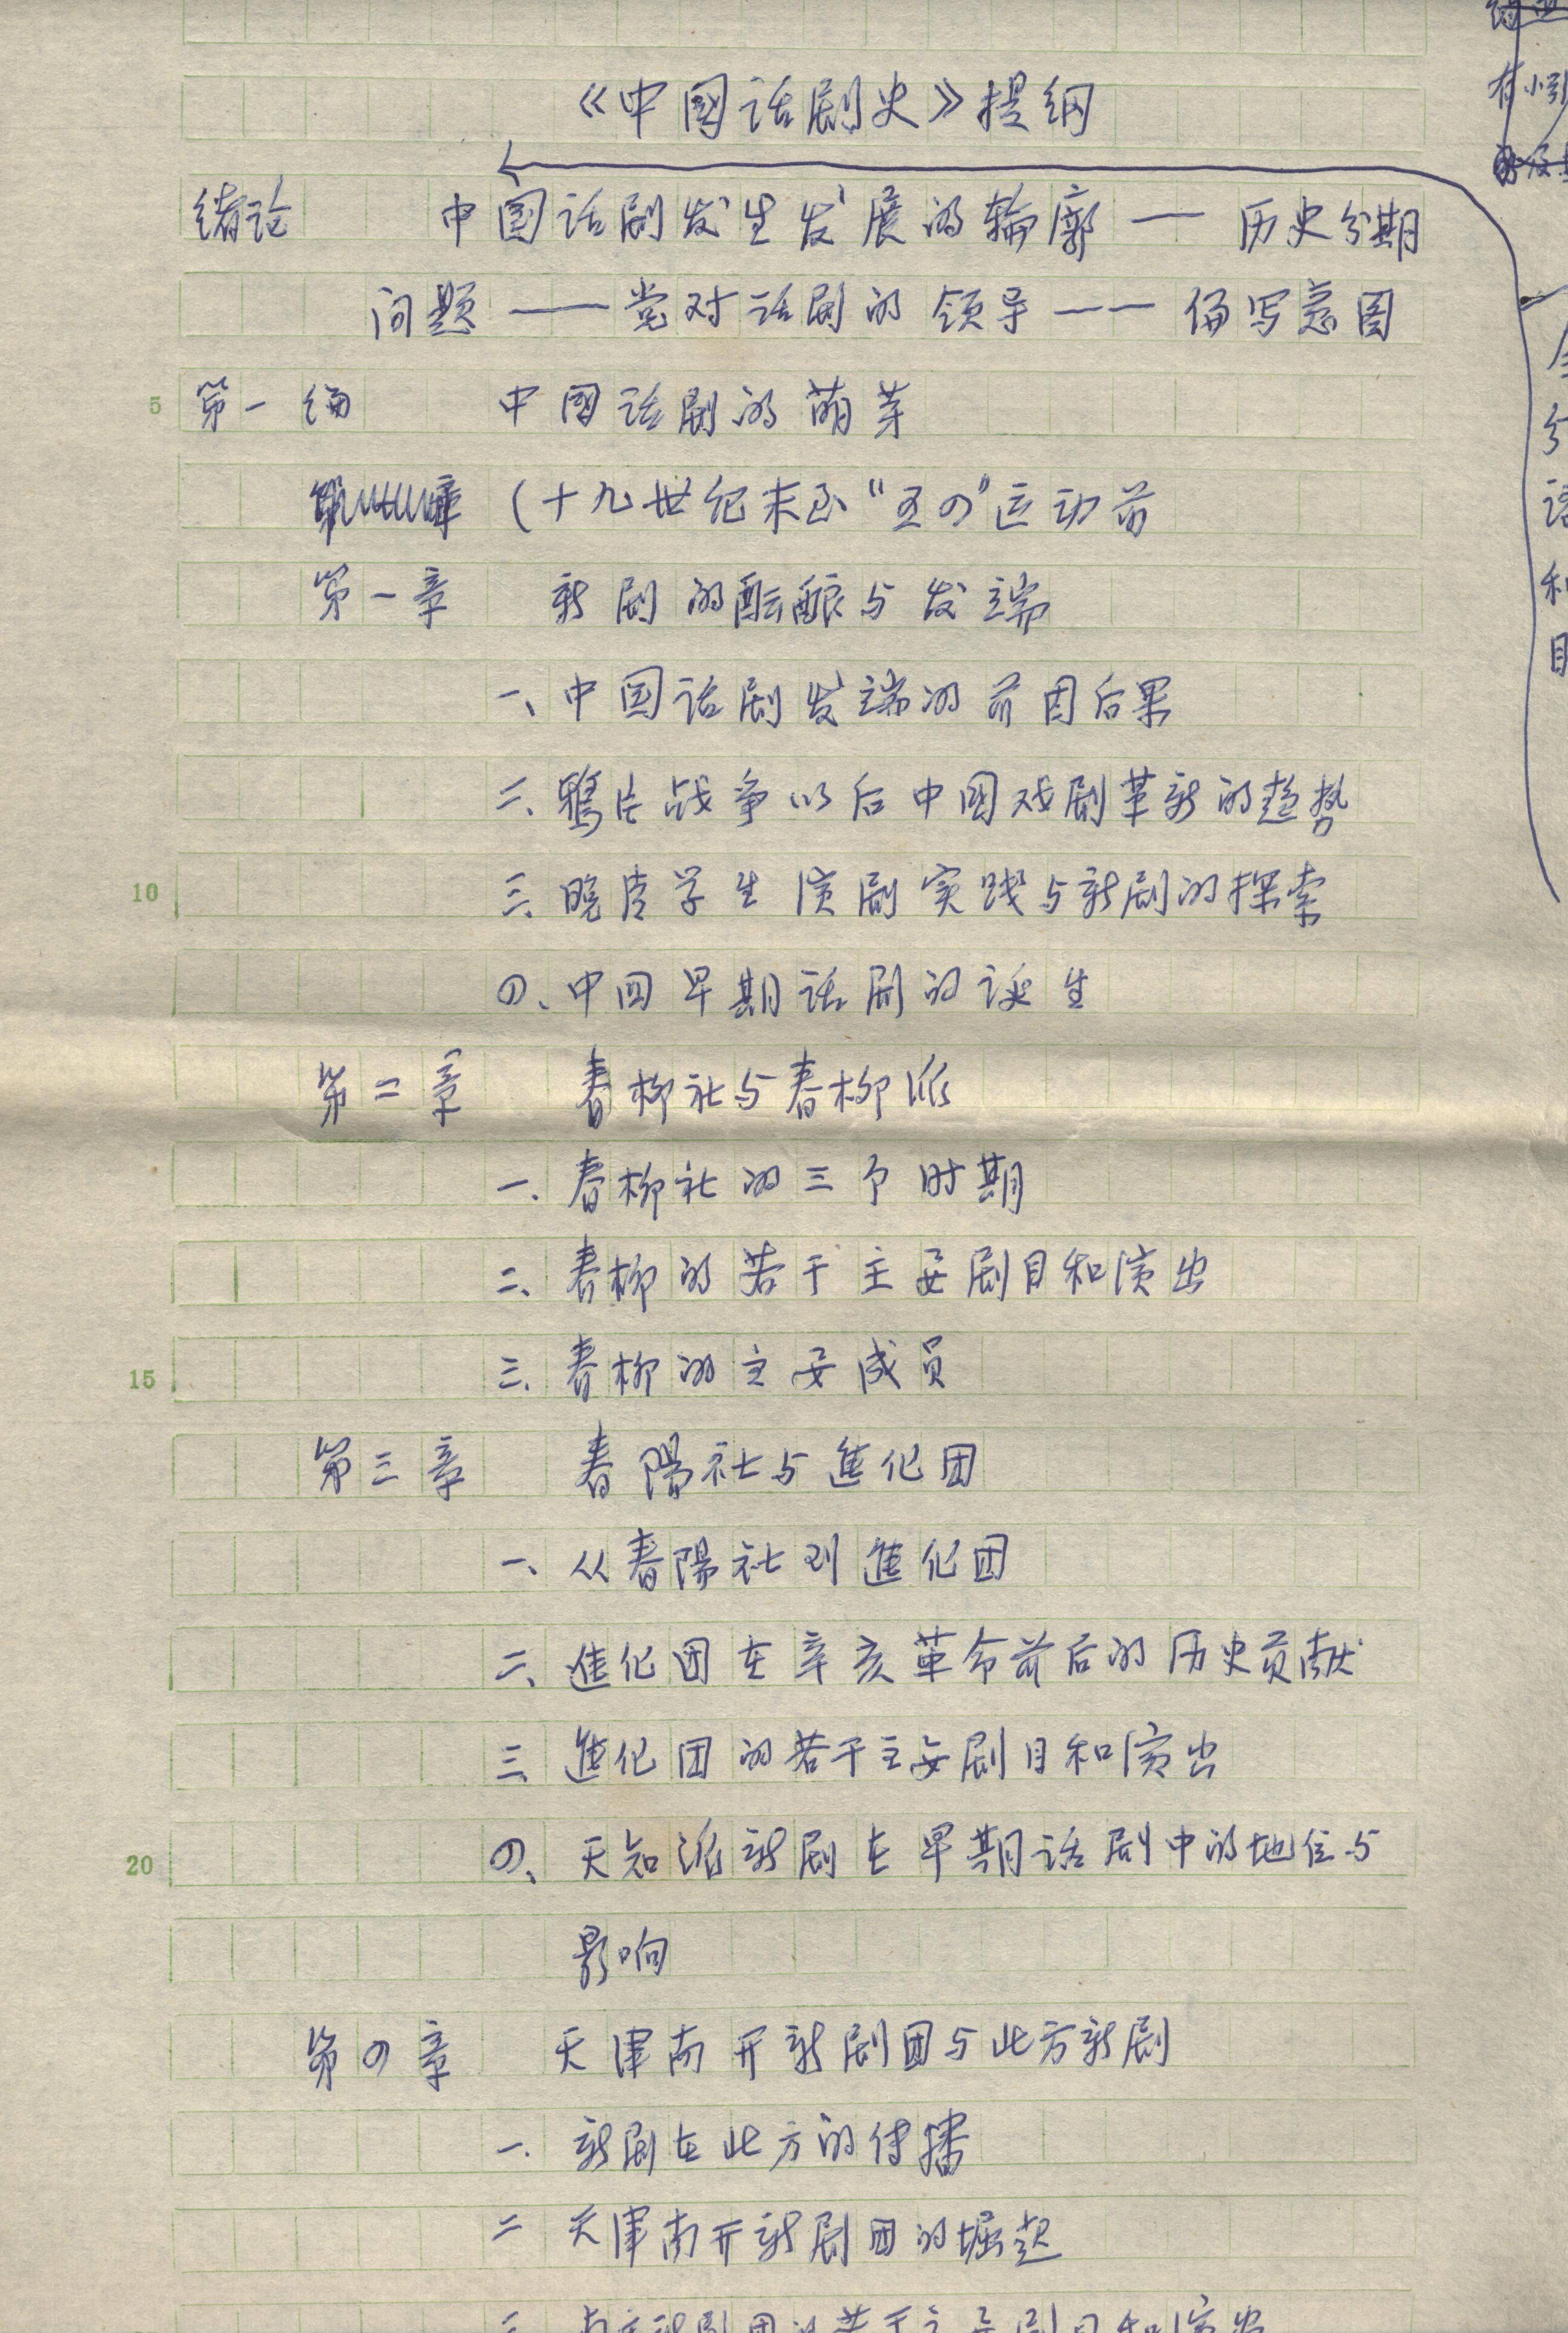 《中國话剧史》提纲
绪论 中国话剧发生发展的轮廓——历史分期
问题——党对话剧的领导——编写意图
5
第一编 中國话剧的萌芽
(十九世纪末至“五四”运动前
第一章 新剧的酝酿与发端
一、中国话剧发端的前因后果
二、鸦片战争以后中國戏剧革新的趋势
10
三、晚清学生演剧实践与新剧的探索
四、中国早期话剧的诞生
第二章 春柳社与春柳派
一、春柳社的三个时期
二、春柳的若干主要剧目和演出
15
三、春柳的主要成员
第三章 春陽社与進化团
一、从春陽社到進化团
二、進化团在辛亥革命前后的历史贡献
三、進化团的若干主要剧目和演出
20
四、天知派新剧在早期话剧中的地位与
影响
第四章 天津南开新剧团与北方新剧
一、新剧在北方的传播
二 天津南开新剧团的崛起
三、南开新剧团的若干主要剧目和演出
有小
分
语
和
目